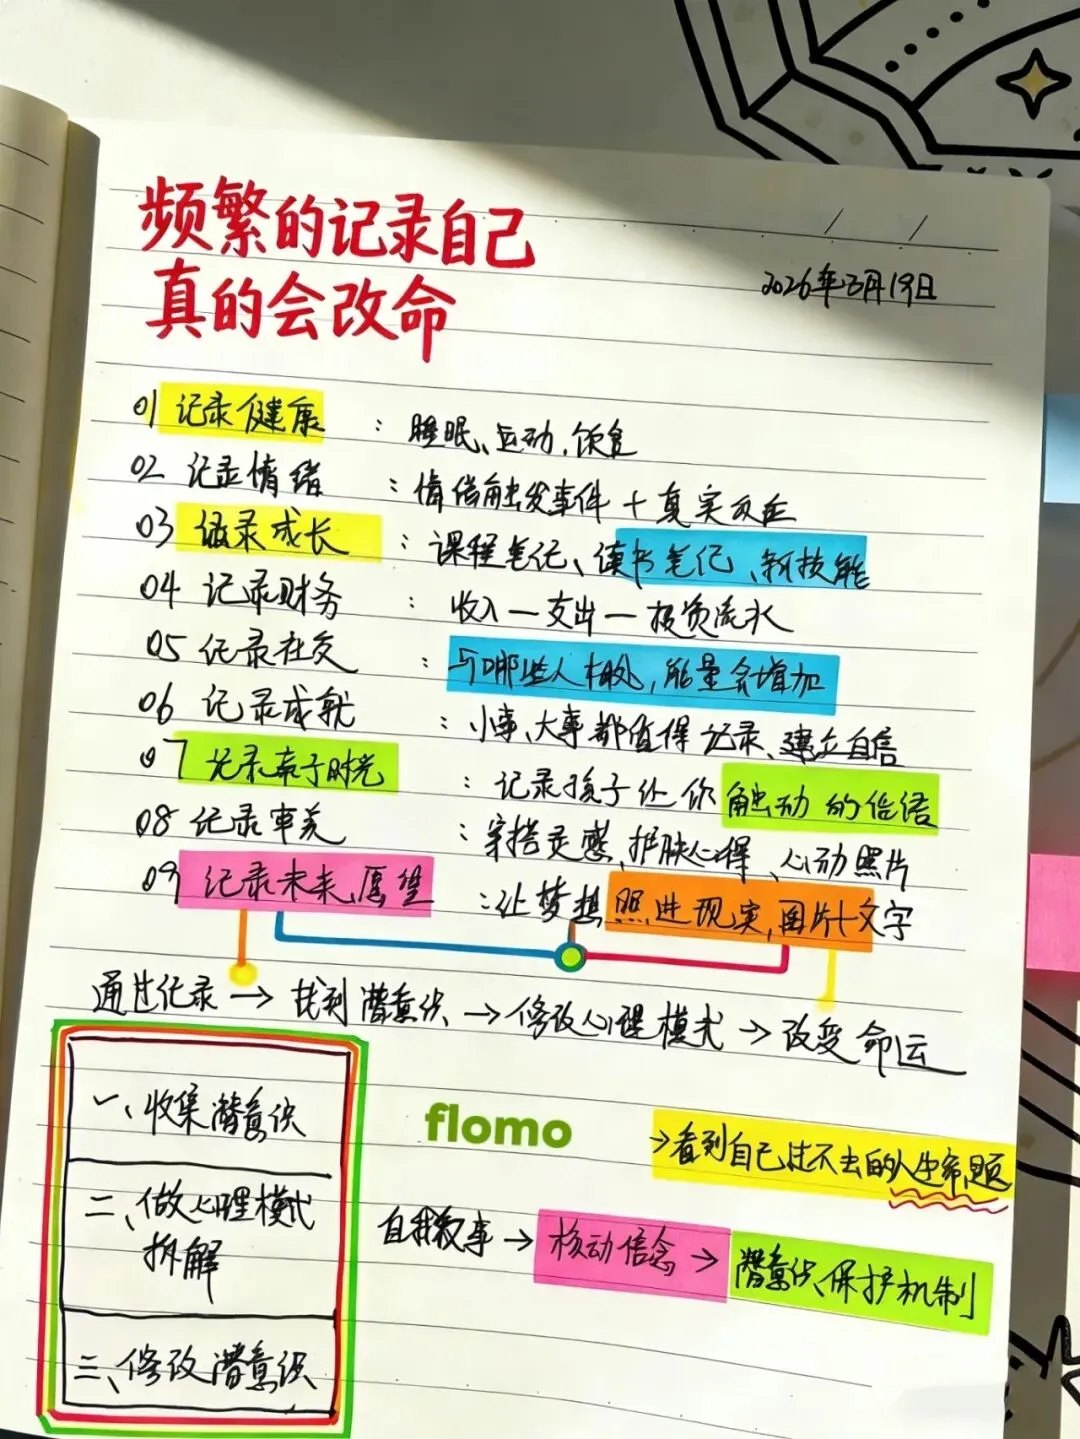 频繁的记录自己
真的会改命
2026年3月19日
01 记录健康 : 睡眠、运动、饮食
02 记录情绪 : 情绪触发事件 + 真实反应
03 记录成长 : 课程笔记、读书笔记、新技能
04 记录财务 : 收入—支出—投资流水
05 记录社交 : 与哪些人相处,能量会增加
06 记录成就 : 小事、大事都值得记录、建立自信
07 记录亲子时光 : 记录孩子让你触动的话语
08 记录审美 : 穿搭灵感、护肤心得、心动照片
09 记录未来、愿望 : 让梦想照进现实,图片+文字
通过记录→找到潜意识→修改心理模式→改变命运
一、收集潜意识
二、做心理模式
拆解
三、修改潜意识
flomo
→看到自己过不去的人生命题
自我叙事→核动信念→潜意识保护机制